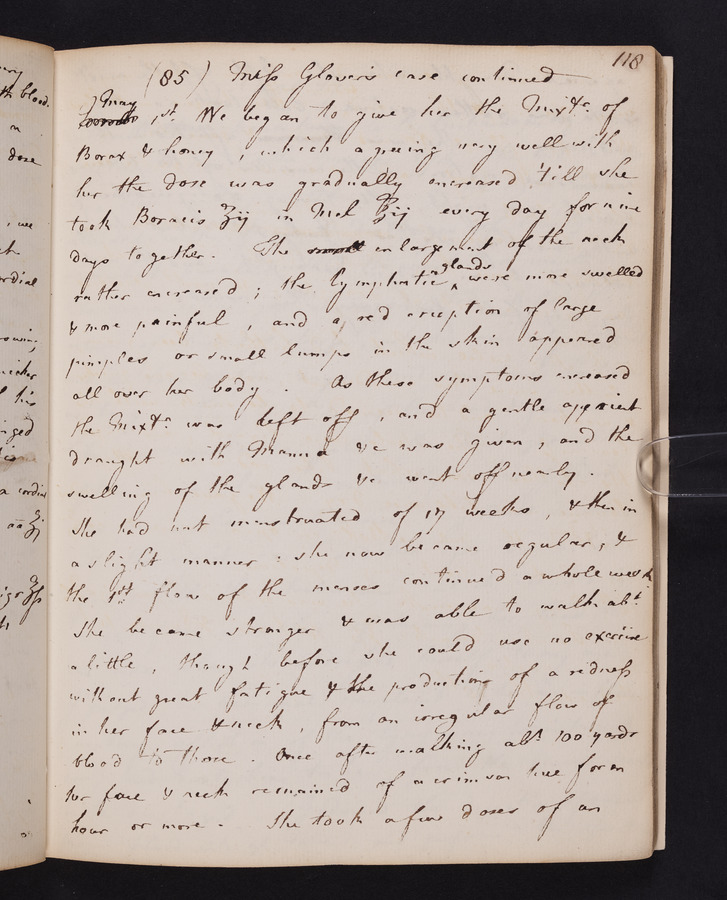 118
(85) Miss Glover's case continued
May
1st. We began to give her the Mixtr. of
Borax & honey, which agreeing very well with
her the dose was gradually encreased 'till she
took Boracis ʒij in Mel ℥ij every day for nine
days together. The enlargement of the neck
rather encreased; the lymphatic ^glands were more swelled
& more painful, and a red eruption of large
pimples or small lumps in the skin appeared
all over her body. As these symptoms encreased
the Mixtr. was left off, and a gentle apperient
draught with Manna &c was given, and the
swelling of the glands &c went off nearly.
She had not menstruated of 17 weeks, & then in
a slight manner: she now became regular, &
the 1st flow of the menses continued a whole week.
She became stronger & was able to walk abt.
a little, though before she could use no exercise
without great fatigue & the production of a redness
in her face & neck, from an irregular flow of
blood to those. Once after walking abt. 100 yards
her face & neck remained of a crimson hue for an
hour or more. She took a few doses of an